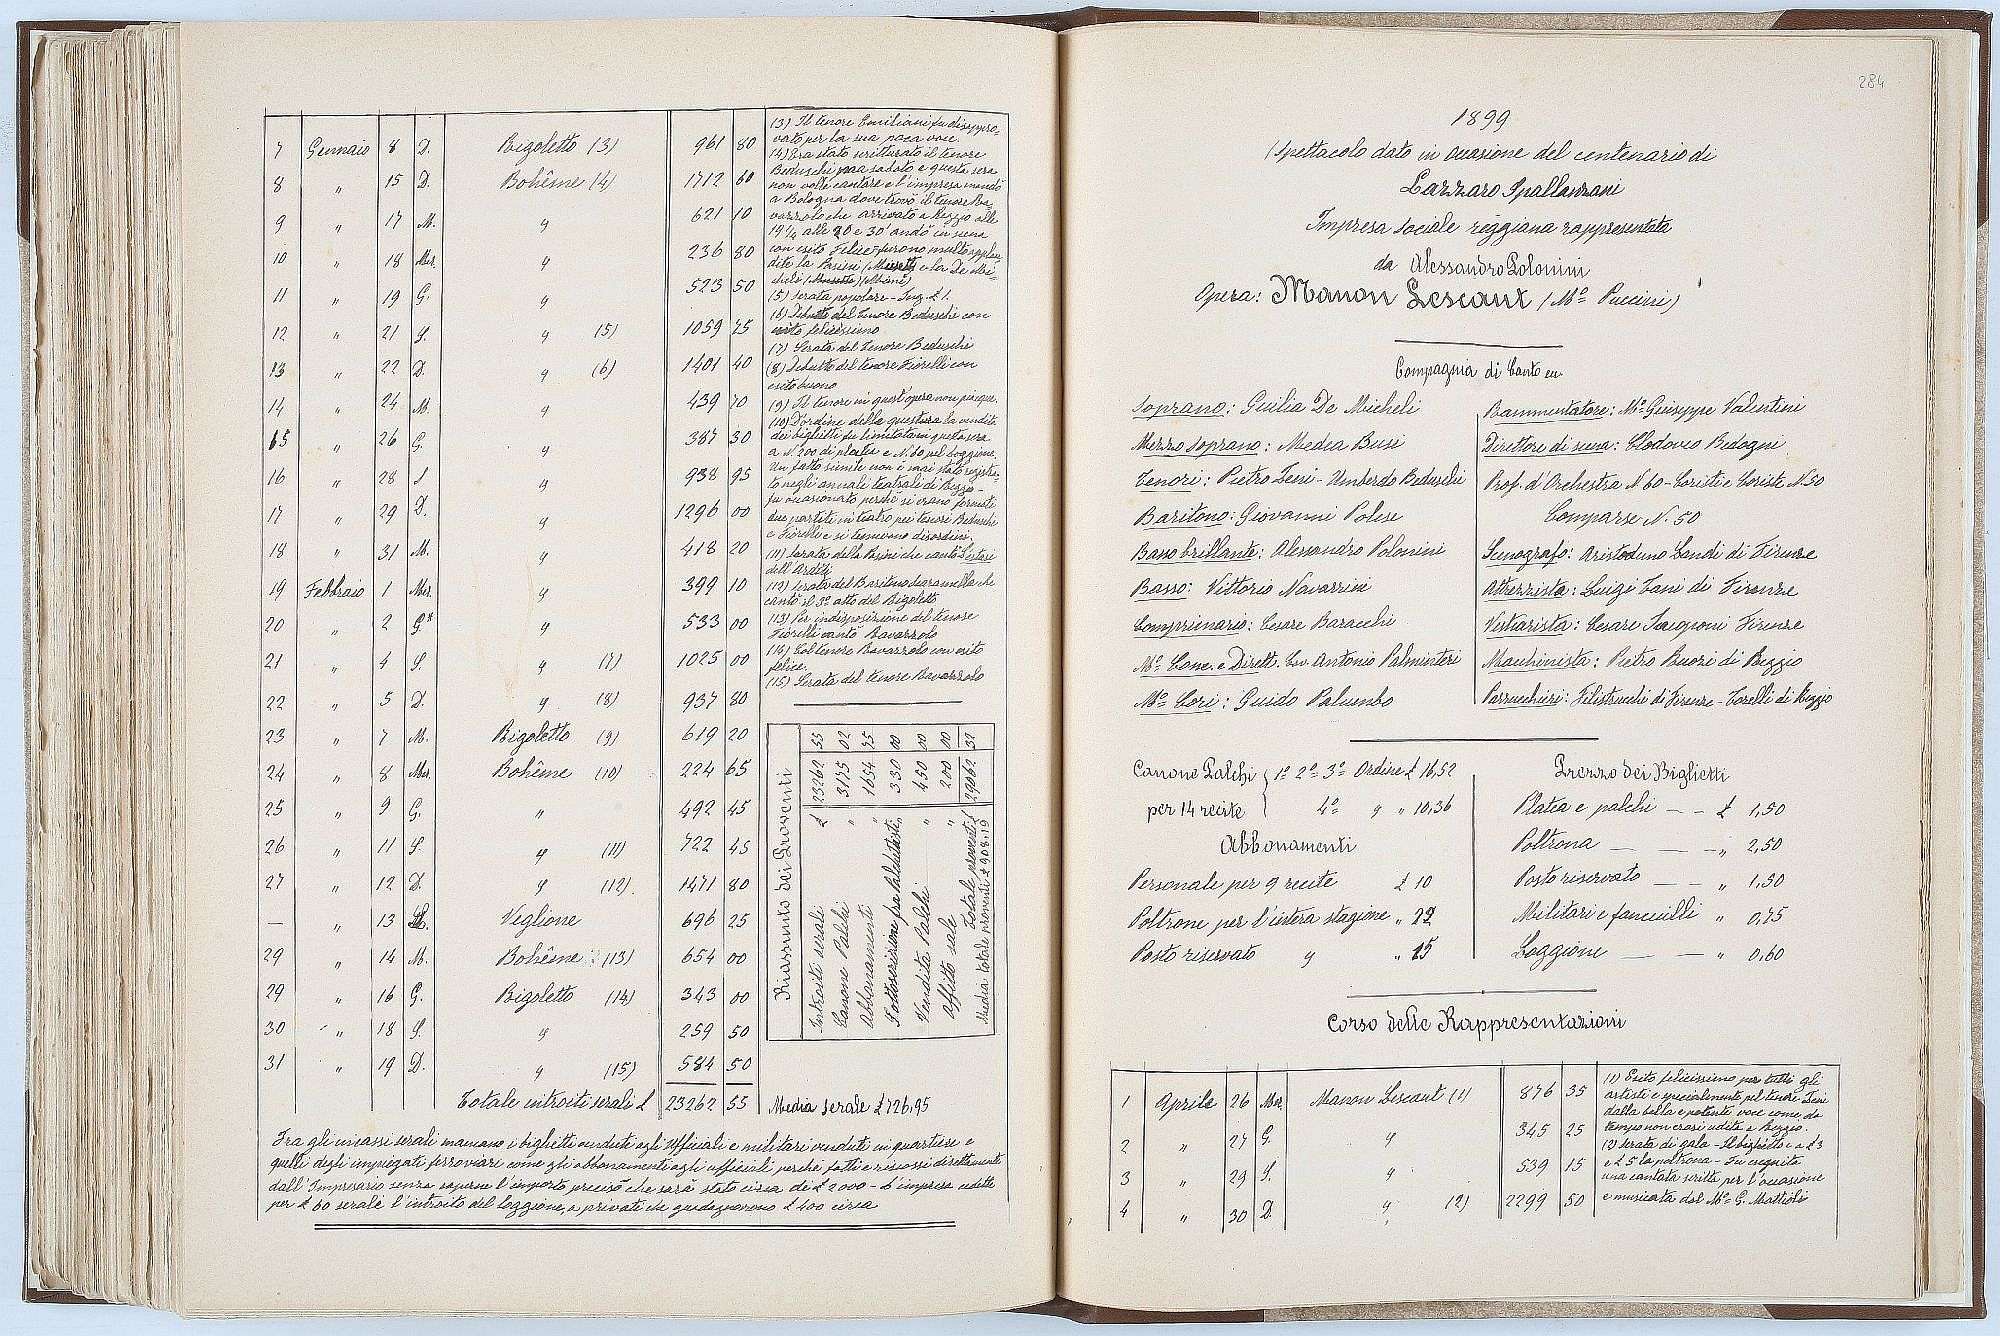 7 Gennaio 8 D. Rigoletto (3) 961 80
8 " 15 D. Bohême (4) 1712 60
9 " 17 M. " 621 10
10 " 18 Mer. " 236 80
11 " 19 G. " 523 50
12 " 21 S. " (5) 1059 75
13 " 22 D. " (6) 1401 40
14 " 24 M. " 439 70
15 " 26 G. " 387 30
16 " 28 S " 938 95
17 " 29 D. " 1296 00
18 " 31 M. " 418 20
19 Febbraio 1 Mer. " 399 10
20 " 2 G.* " 533 00
21 " 4 S. " (7) 1025 00
22 " 5 D. " (8) 937 80
23 " 7 M. Rigoletto (9) 619 20
24 " 8 Mer. Bohême (10) 224 65
25 " 9 G. " 492 45
26 " 11 S. " (11) 722 45
27 " 12 D. " (12) 1471 80
— " 13 Veglione 696 25
29 " 14 M. Bohême (13) 654 00
29 " 16 G. Rigoletto (14) 343 00
30 " 18 S. " 259 50
31 " 19 D. " (15) 584 50
Totale introiti serali £ 23262 55
(3) Il tenore Emiliani fu disappro-
vato per la sua poca voce.
(4) Era stato scritturato il tenore
Beduschi ma sabato e questa sera
non volle cantare e l'impresa mandò
a Bologna dove trovò il tenore Ra-
vazzolo che arrivato a Reggio alle
19¼ alle 20 e 30' andò in scena
con esito felice, furono molto applau-
dite la Pasini (Musetta) e la De Mi-
cheli (Mimì)
(5) Serata popolare - Ing. £ 1.
(6) Debutto del tenore Beduschi con
esito felicissimo
(7) Serata del tenore Beduschi
(8) Debutto del tenore Fiorelli con
esito buono
(9) Il tenore in quest'opera non piacque.
(10) D'ordine della questura la vendita
dei biglietti fu limitata in questa sera
a N. 200 di platea e N. 60 pel loggione.
Un fatto simile non è mai stato registra-
to negli annali teatrali di Reggio -
fu occasionato perchè si erano formati
due partiti in teatro pei tenori Beduschi
e Fiorelli e si temevano disordini.
(11) Serata della Pasini che cantò
dell'Arditi
(12) Serata del Baritono che
cantò il 3º atto del Rigoletto
(13) Per indisposizione del tenore
Fiorelli cantò Ravazzolo
(14) Col tenore Ravazzolo con esito
felice.
(15) Serata del tenore Ravazzolo
Riassunto dei Proventi
Introiti serali £ 23262 55
Canone Palchi " 3175 02
Abbonamenti " 1654 75
Sottoscrizione fra 330 00
Vendita Palchi " 450 00
Affitto sale " 200 00
Totale proventi £ 29062 32
Media totale proventi £ 908,19
Media serale £ 726,95
Fra gli incassi serali mancano i biglietti venduti agli Ufficiali e militari venduti in quartiere e
quelli degli impiegati ferroviari come gli abbonamenti agli ufficiali perchè fatti e riscossi direttamente
dall'Impresario senza sapere l'importo preciso che sarà stato circa di £ 2000 - L'impresa cedette
per £ 60 serale l'introito del loggione, a privati che guadagnarono £ 400 circa
284
1899
(Spettacolo dato in occasione del centenario di
Lazzaro Spallanzani
Impresa sociale reggiana rappresentata
da Alessandro Polonini
Opera: Manon Lescaut (Mº Puccini)
Compagnia di Canto ecc.
Soprano: Giulia De Micheli
Mezzo Soprano: Medea Busi
Tenori: Pietro Zeni - Umberto Beduschi
Baritono: Giovanni Polese
Basso brillante: Alessandro Polonini
Basso: Vittorio Navarrini
Comprimario: Cesare Baracchi
Mº Conc. e Dirett. Cav. Antonio Palminteri
Mº Cori: Guido Palumbo
Rammentatore: Mº Giuseppe Valentini
Direttore di scena: Clodoveo Bedogni
Prof. d'Orchestra N 60 - Coristi e Coriste N. 50
Comparse N. 50
Scenografo: Aristodemo Landi di Firenze
Attrezzista: Luigi Tani di Firenze
Vestiarista: Cesare Firenze
Macchinista: Pietro Buori di Reggio
Parrucchieri: Filistrucchi di Firenze - Torelli di Reggio
Canone Palchi { 1º 2º 3º Ordine £ 16,52
per 14 recite { 4º " " 10,36
Abbonamenti
Personale per 9 recite £ 10
Poltrone per l'intera stagione " 22
Posto riservato " " 15
Prezzo dei Biglietti
Platea e palchi — — £ 1,50
Poltrona — — — " 2,50
Posto riservato — — " 1,50
Militari e fanciulli " 0,75
Loggione — — " 0,60
Corso delle Rappresentazioni
1 Aprile 26 Mer. Manon Lescaut (1) 876 35
2 " 27 G. " 345 25
3 " 29 S. " 539 15
4 " 30 D. " (2) 2299 50
(1) Esito felicissimo per tutti gli
artisti e specialmente pel tenore Zeni
dalla bella e potente voce come da
tempo non erasi udita a Reggio.
(2) Serata di gala - Il biglietto e a £ 3
e £ 5 la poltrona - Fu eseguita
una cantata scritta per l'occasione
e musicata dal Mº G. Mattioli